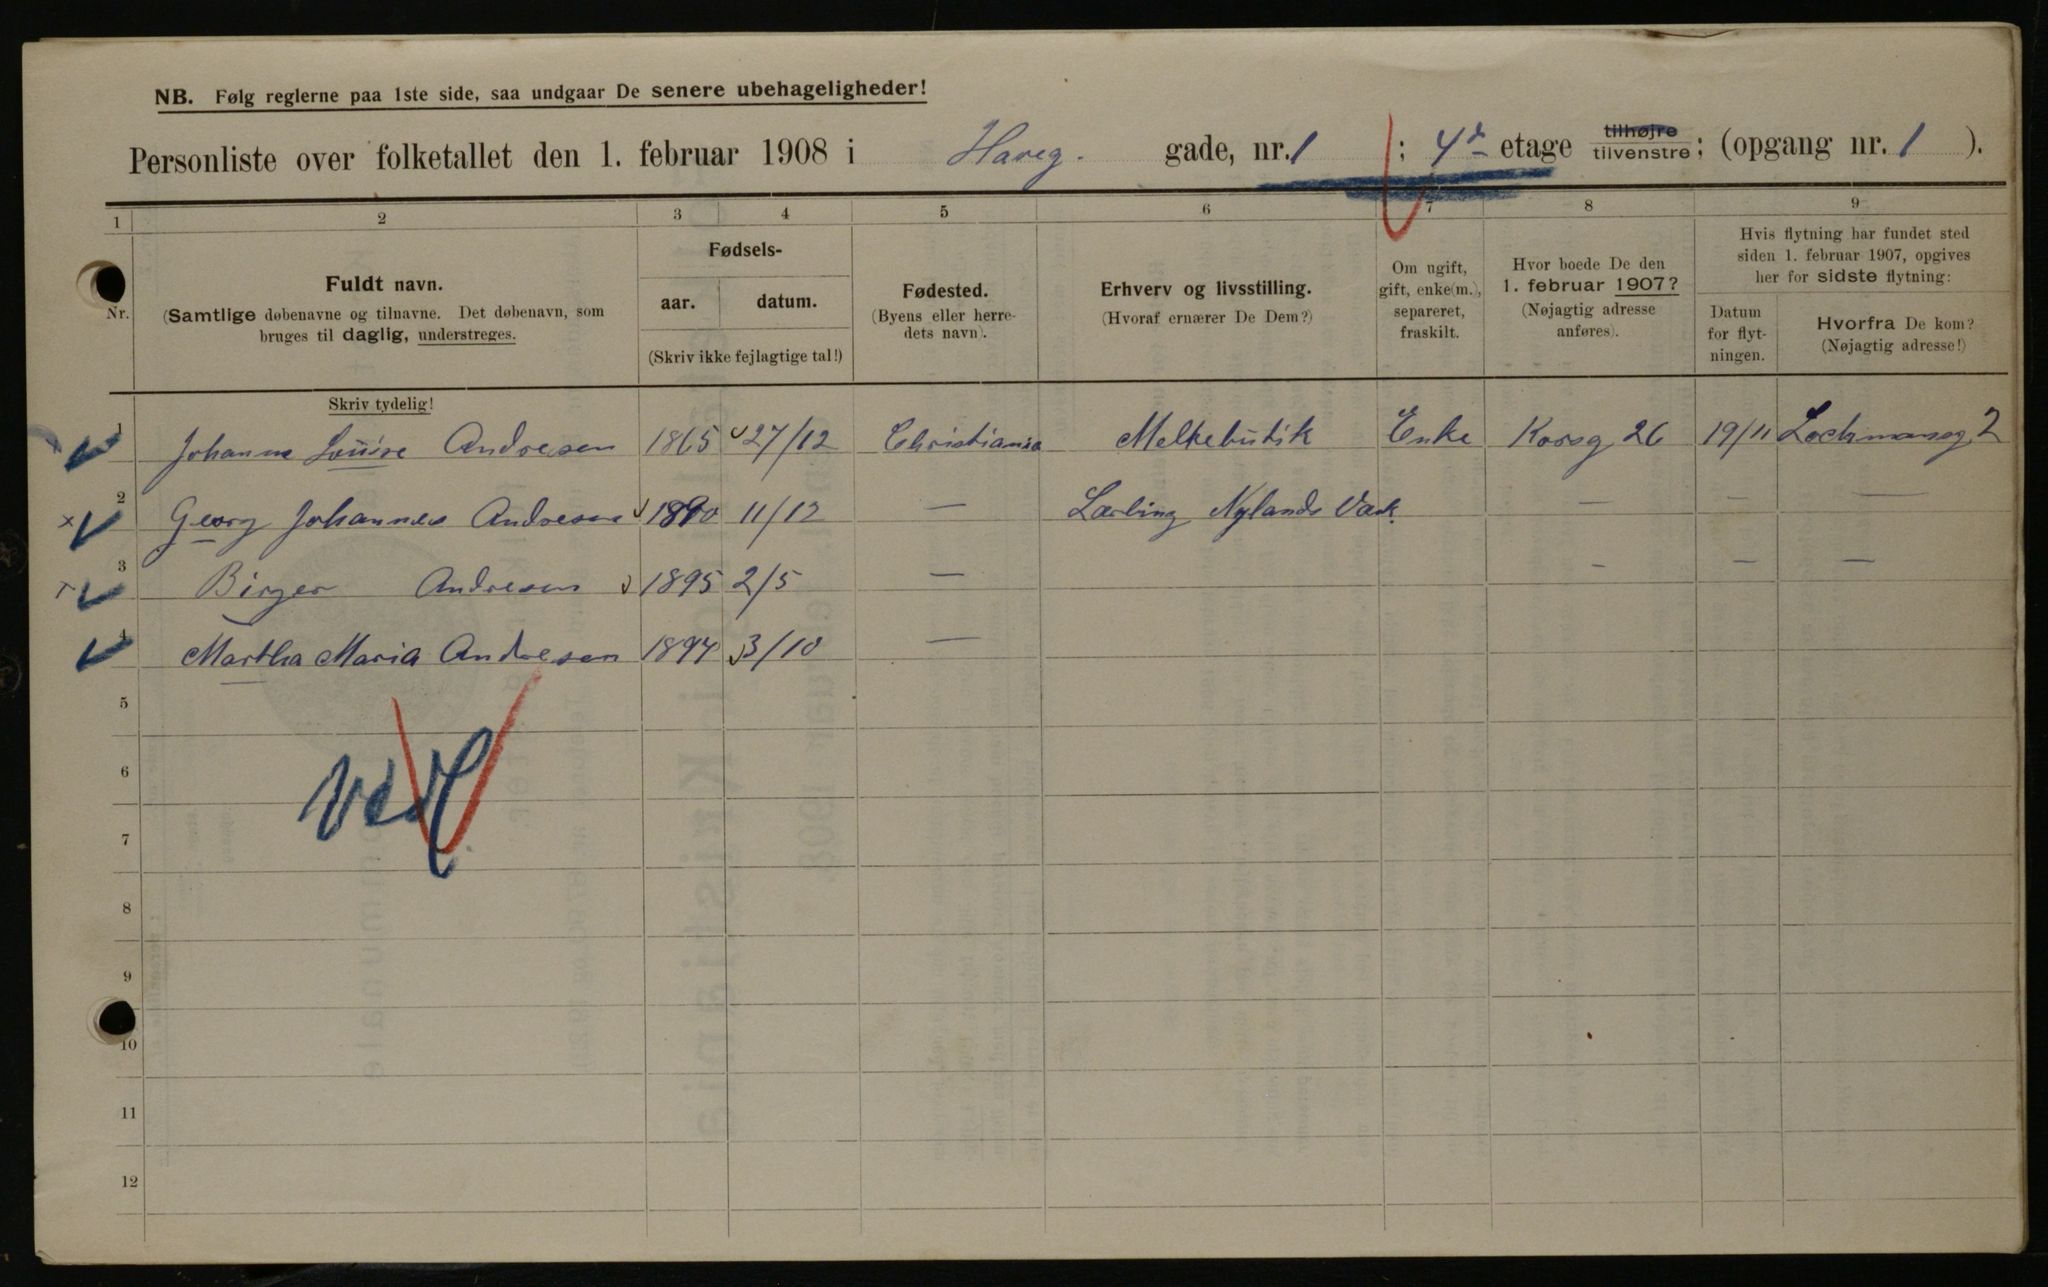 NB. Følg reglerne paa 1ste side, saa undgaar De senere ubehageligheder!
Personliste over folketallet den 1. februar 1908 i Haveg. gade, nr. 1 ; 4de etage tilhøjre tilvenstre; (opgang nr. 1 ).
1 2 3 4 5 6 7 8 9
Nr.
Fuldt navn.
(Samtlige døbenavne og tilnavne. Det døbenavn, som
bruges til daglig, understreges.
Skriv tydelig!
Fødsels-
aar. datum.
(Skriv ikke fejlagtige tal!)
Fødested.
(Byens eller herre-
dets navn).
Erhverv og livsstilling.
(Hvoraf ernærer De Dem?)
Om ugift,
gift, enke(m.),
separeret,
fraskilt.
Hvor boede De den
1. februar 1907?
(Nøjagtig adresse
anføres).
Hvis flytning har fundet sted
siden 1. februar 1907, opgives
her for sidste flytning:
Datum
for flyt-
ningen.
Hvorfra De kom?
(Nøjagtig adresse!)
1 Johanne Louise Andresen 1865 27/12 Christiania Melkebutik Enke Korsg 26 19/11 Lochmansg 2
2 Georg Johannes Andresen 1890 11/12 — Lærling Nylands Værk. — — —
3 Birger Andresen 1895 2/5 — — — —
4 Martha Maria Andresen 1897 3/10 —
5
6
7
8
9
10
11
12